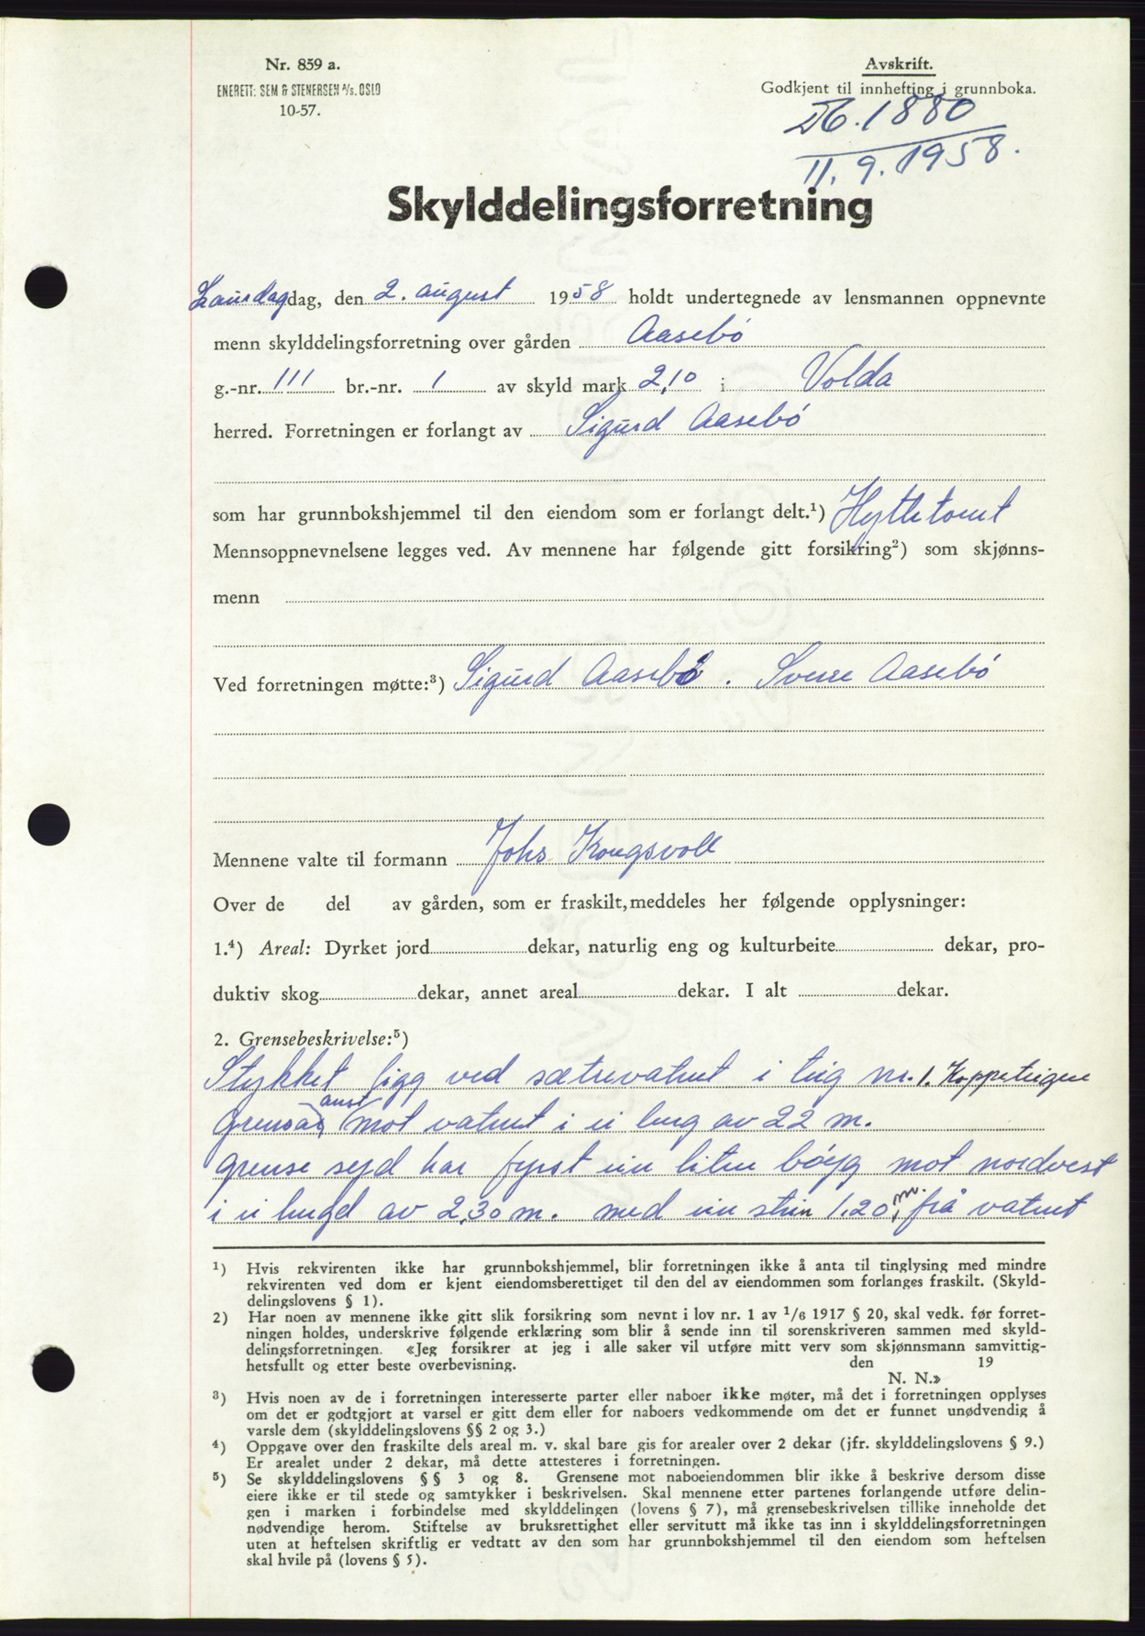 Nr. 859 a.
ENERETT: SEM & STENERSEN A/S. OSLO
10-57.
Avskrift.
Godkjent til innhefting i grunnboka.
Db. 1880
11.9.1958.
Skylddelingsforretning
Laurdag dag, den 2. august 1958 holdt undertegnede av lensmannen oppnevnte
menn skylddelingsforretning over gården Aasebö
g.-nr. 111 br.-nr. 1 av skyld mark 2,10 i Volda
herred. Forretningen er forlangt av Sigurd Aasebö
som har grunnbokshjemmel til den eiendom som er forlangt delt.¹) Hyttetomt
Mennsoppnevnelsene legges ved. Av mennene har følgende gitt forsikring²) som skjønns-
menn
Ved forretningen møtte:³) Sigurd Aasebö. Sverre Aasebö
Mennene valte til formann Johs Kongsvoll
Over de del av gården, som er fraskilt, meddeles her følgende opplysninger:
1.⁴) Areal: Dyrket jord dekar, naturlig eng og kulturbeite dekar, pro-
duktiv skog dekar, annet areal dekar. I alt dekar.
2. Grensebeskrivelse:⁵)
Stykket ligg ved sætrevatnet i teig nr. 1. Koppeteigen
aust
Grensar mot vatnet i ei leng av 22 m.
grense syd har fyrst ein liten bøyg mot nordvest
i ei lengd av 2,30 m. med ein stein 1.20 m. frå vatnet
¹) Hvis rekvirenten ikke har grunnbokshjemmel, blir forretningen ikke å anta til tinglysing med mindre
rekvirenten ved dom er kjent eiendomsberettiget til den del av eiendommen som forlanges fraskilt. (Skyld-
delingslovens § 1).
²) Har noen av mennene ikke gitt slik forsikring som nevnt i lov nr. 1 av 1/6 1917 § 20, skal vedk. før forret-
ningen holdes, underskrive følgende erklæring som blir å sende inn til sorenskriveren sammen med skyld-
delingsforretningen. «Jeg forsikrer at jeg i alle saker vil utføre mitt verv som skjønnsmann samvittig-
hetsfullt og etter beste overbevisning. den 19
N. N.»
³) Hvis noen av de i forretningen interesserte parter eller naboer ikke møter, må det i forretningen opplyses
om det er godtgjort at varsel er gitt dem eller for naboers vedkommende om det er funnet unødvendig å
varsle dem (skylddelingslovens §§ 2 og 3.)
⁴) Oppgave over den fraskilte dels areal m. v. skal bare gis for arealer over 2 dekar (jfr. skylddelingslovens § 9.)
Er arealet under 2 dekar, må dette attesteres i forretningen.
⁵) Se skylddelingslovens § § 3 og 8. Grensene mot naboeiendommen blir ikke å beskrive dersom disse
eiere ikke er til stede og samtykker i beskrivelsen. Skal mennene etter partenes forlangende utføre delin-
gen i marken i forbindelse med skylddelingen (lovens § 7), må grensebeskrivelsen tillike inneholde det
nødvendige herom. Stiftelse av bruksrettighet eller servitutt må ikke tas inn i skylddelingsforretningen
uten at heftelsen skriftlig er vedtatt av den som har grunnbokshjemmel til den eiendom som heftelsen
skal hvile på (lovens § 5).